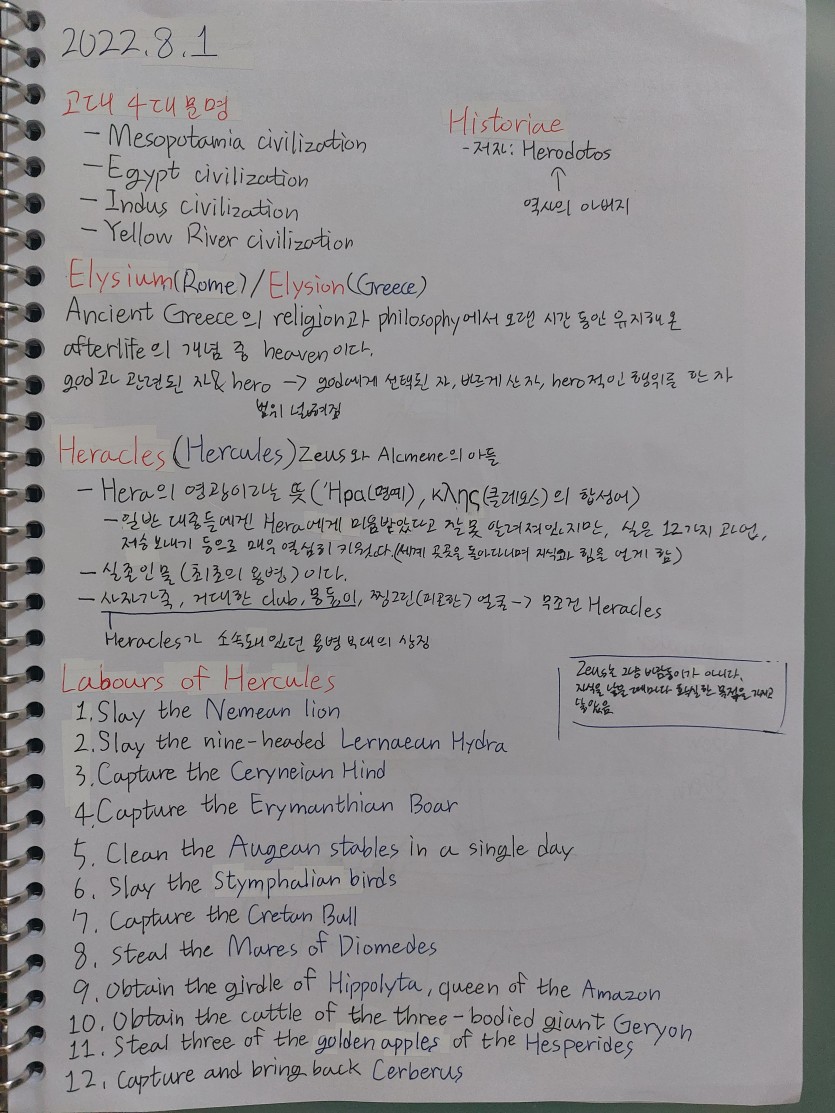 2022.8.1
고대 4대 문명
- Mesopotamia civilization
- Egypt civilization
- Indus civilization
- Yellow River civilization
Historiae
- 저자: Herodotos
↑
역사의 아버지
Elysium(Rome)/Elysion(Greece)
Ancient Greece의 religion과 philosophy에서 오랜 시간 동안 유지해 온
afterlife의 개념 중 heaven이다.
god과 관련된 자& hero -> god에게 선택된 자, 바르게 산 자, hero적인 행위를 한 자
범위 넓혀짐
Heracles(Hercules) Zeus와 Alcmene의 아들
- Hera의 영광이라는 뜻('Ηρα(명예), κλης(클레오스)의 합성어)
- 일반 대중들에겐 Hera에게 미움받았다고 잘못 알려져있지만, 실은 12가지 과업,
저승 보내기 등으로 매우 열심히 키웠다.(세계 곳곳을 돌아다니며 지식과 힘을 얻게 함)
- 실존인물(최초의 용병)이다.
- 사자가죽, 거대한 club, 몽둥이, 찡그린(피로한) 얼굴-> 무조건 Heracles
Heracles가 소속돼있던 용병 부대의 상징
Labours of Hercules
Zeus는 그냥 바람둥이가 아니라,
자식을 낳을 때마다 확실한 목적을 가지고
낳았음
1. Slay the Nemean lion
2. Slay the nine-headed Lernaean Hydra
3. Capture the Ceryneian Hind
4. Capture the Erymanthian Boar
5. Clean the Augean stables in a single day
6. Slay the Stymphalian birds
7. Capture the Cretan Bull
8. Steal the Mares of Diomedes
9. Obtain the girdle of Hippolyta, queen of the Amazon
10. Obtain the cattle of the three-bodied giant Geryon
11. Steal three of the golden apples of the Hesperides
12. Capture and bring back Cerberus